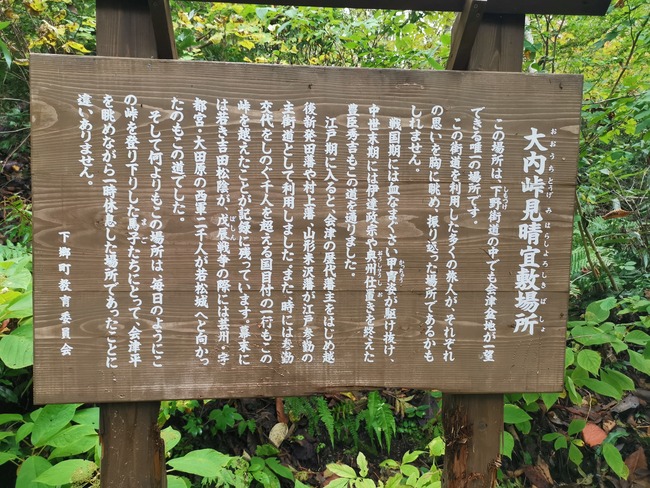 大内峠見晴宜敷場所
おおうちとうげ みはらしよろしきばしょ
この場所は、下野街道の中でも会津盆地が一望
しもつけ
できる唯一の場所です。
この街道を利用した多くの旅人が、それぞれ
の思いを胸に眺め、振り返った場所であるかも
しれません。
戦国期には血なまぐさい甲冑姿が駆け抜け、
かっちゅう
中世末期には伊達政宗や奥州仕置きを終えた
おうしゅうしお
豊臣秀吉もこの道を通りました。
江戸期に入ると、会津の歴代藩主をはじめ越
後新発田藩や村上藩、山形米沢藩が江戸参勤の
主街道として利用しました。また一時には参勤
交代をしのぐ千人を超える国目付の一行もこの
峠を越えたことが記録に残っています。幕末に
は若き吉田松陰が、戊辰戦争の際には芸州・宇
ぼしん
都宮・大田原の西軍二千人が若松城へと向かっ
たのもこの道でした。
そして何よりもこの場所は、毎日のようにこ
の峠を登り下りした馬子たちにとって、会津平
まご
を眺めながら一時休息した場所であったことに
違いありません。
下郷町教育委員会